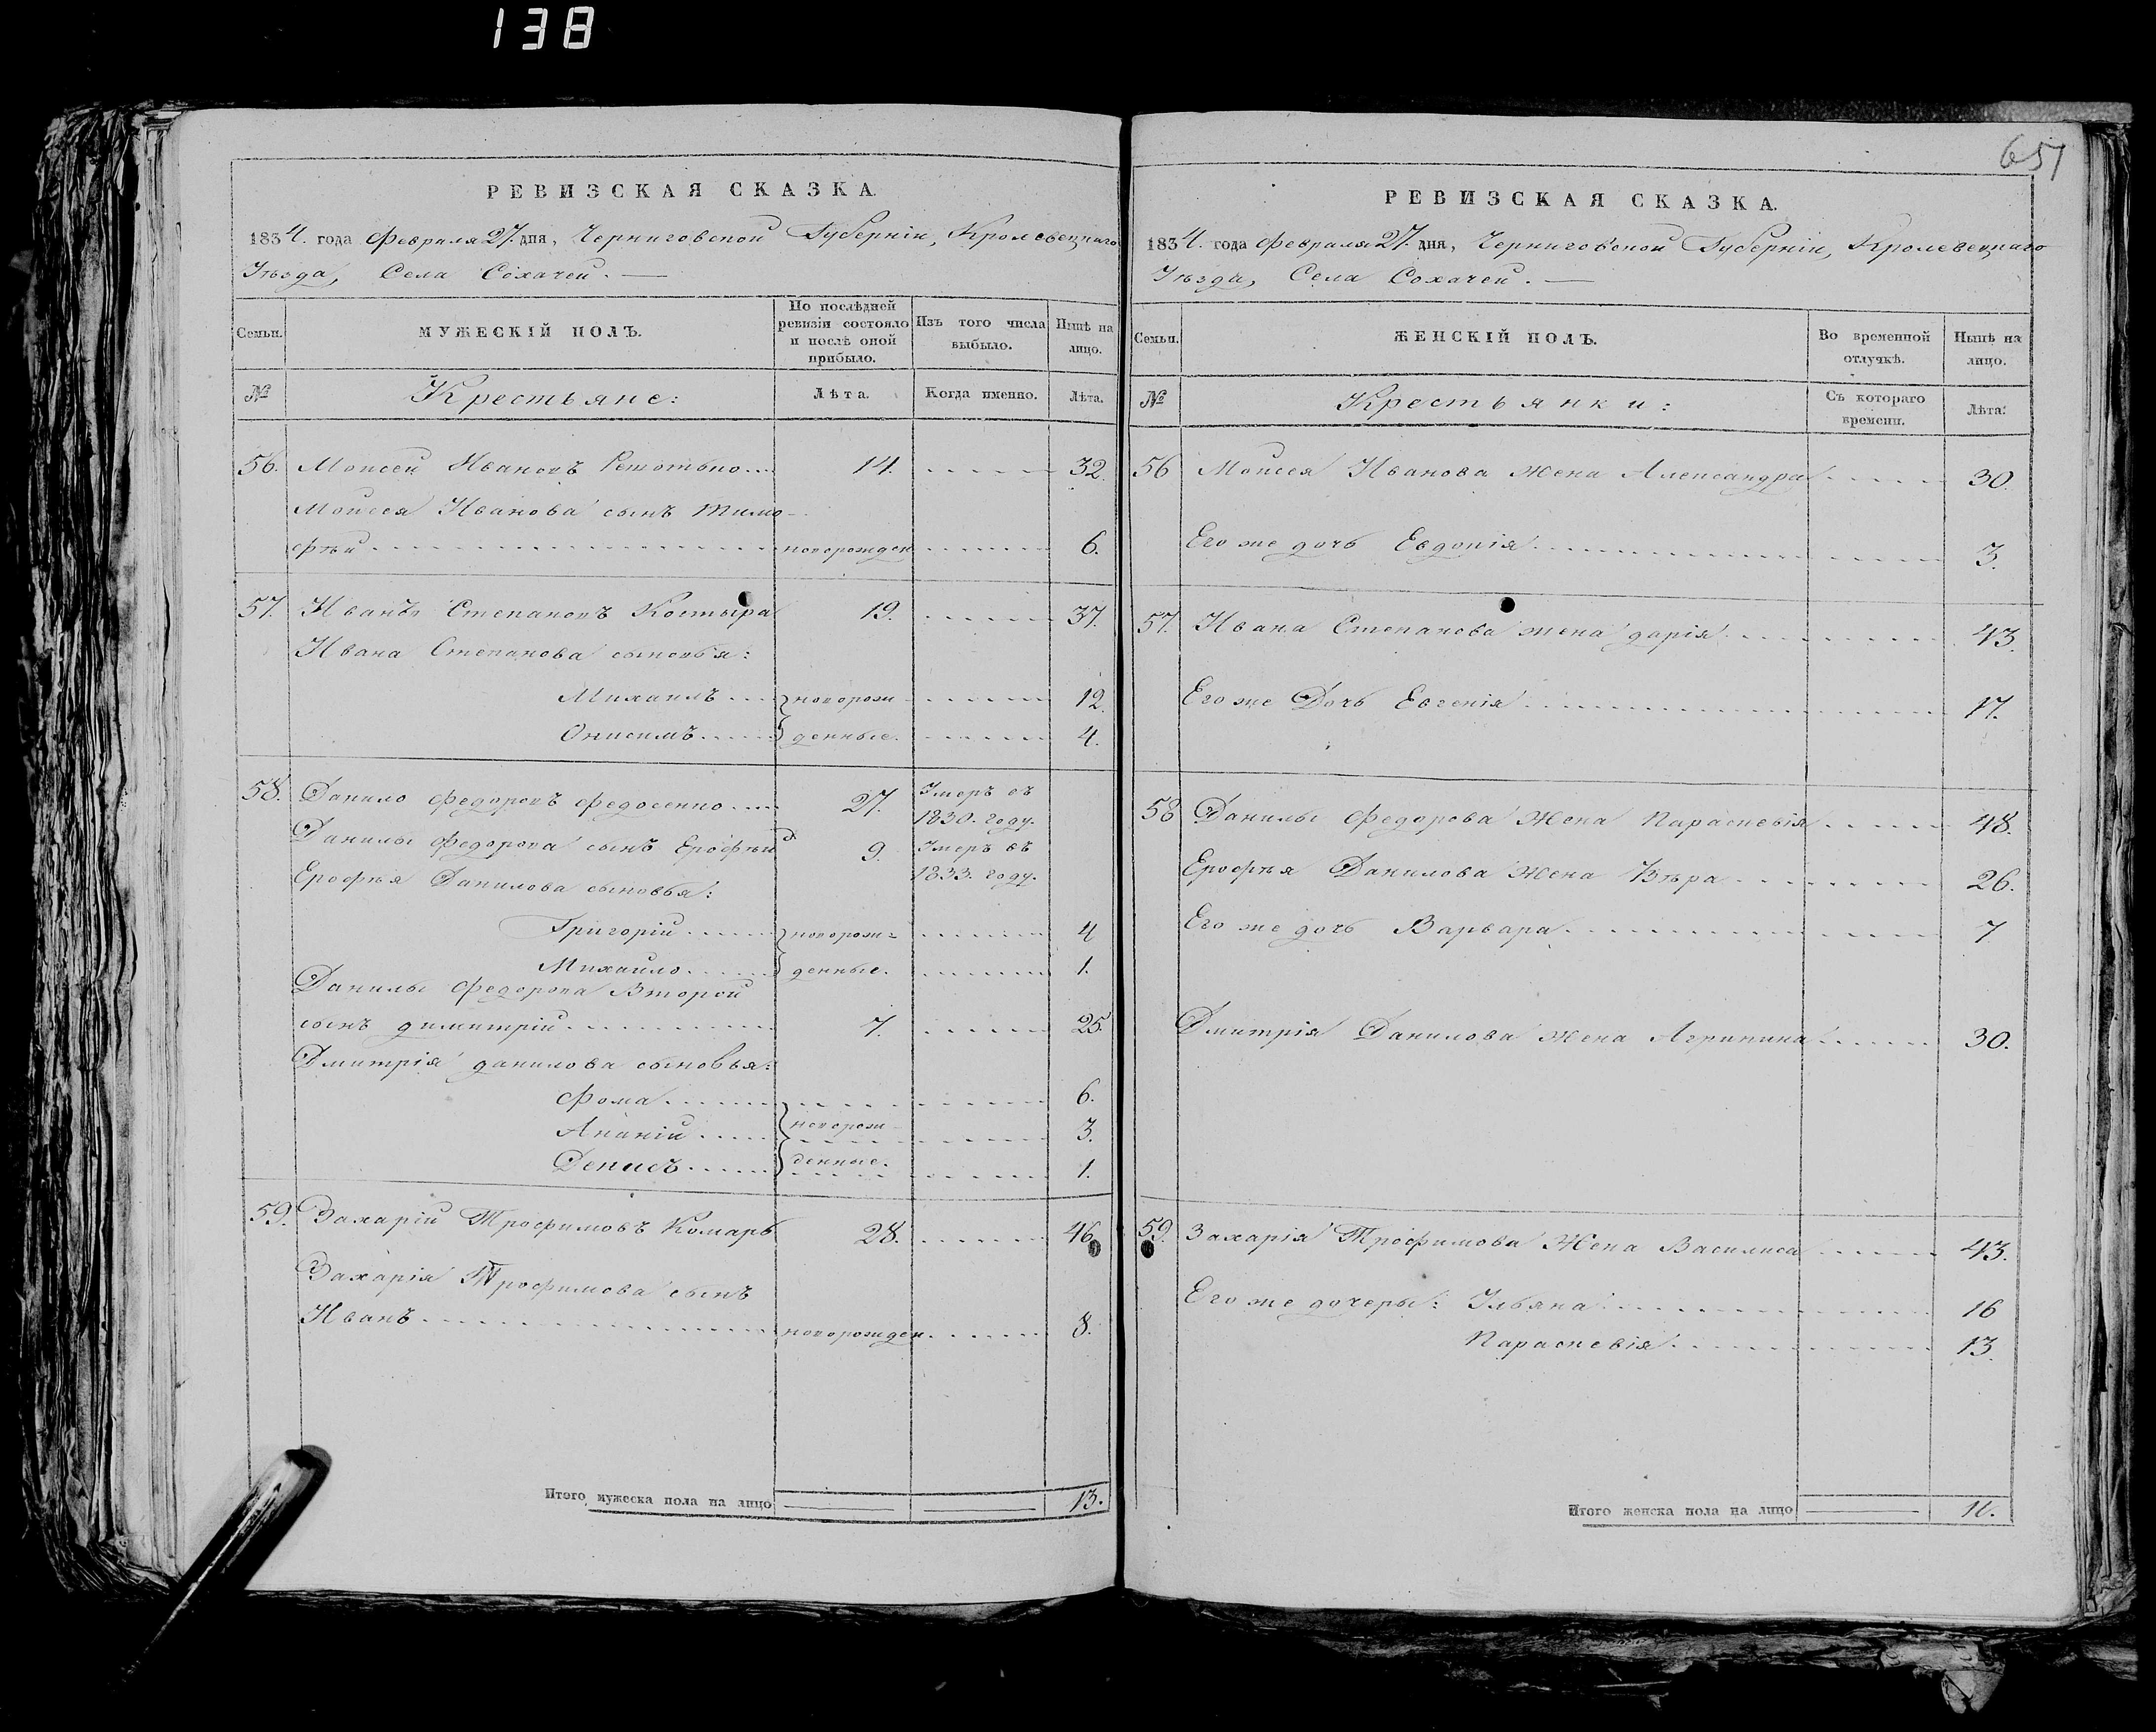 138
651
РЕВИЗСКАЯ СКАЗКА.
1834. года Февраля 27. дня, Черниговской Губерніи, Кролевецкаго
Уѣзда, Села Сохачей. —
Семьи.
МУЖЕСКІЙ ПОЛЪ.
По послѣдней ревизіи состояло и послѣ оной прибыло.
Изъ того числа выбыло.
Нынѣ на лицо.
№
Крестьяне:
Лѣта.
Когда именно.
Лѣта.
56. Моисей Ивановъ 14. 32.
Моисея Иванова сынъ Тимо-
фѣй новорожден 6.
57. Иванъ Степановъ Костыра 19. 37.
Ивана Степанова сыновья:
Михаилъ новорож 12.
Онисимъ денные. 4.
58. Данило Федоровъ Федосенко 27. Умеръ въ
1830. году.
Данилы Федорова сынъ Ерофѣй 9. Умеръ въ
1833. году.
Ерофѣя Данилова сыновья:
Григорій новорож= 4
Михайло денные. 1.
Данилы Федорова Второй
сынъ димитрій 7. 25.
Дмитрія данилова сыновья:
Фома 6.
Ананій новорож 3.
Денисъ денные. 1.
59. Захарій Трофимовъ Комарь 28. 46
Захарія Трофимова сынъ
Иванъ новорожден. 8.
Итого мужеска пола на лицо 13.
РЕВИЗСКАЯ СКАЗКА.
1834. года Февраля 27. дня, Черниговской Губерніи, Кролевецкаго
Уѣзда, Села Сохачей. —
Семьи.
ЖЕНСКІЙ ПОЛЪ.
Во временной отлучкѣ.
Нынѣ на лицо.
№
Крестьянки:
Съ котораго времени.
Лѣта.
56 Моисея Иванова жена Александра 30.
Его же дочь Евдокія 3.
57. Ивана Степанова жена дарія 43.
Его же Дочь Евгенія 17.
58 Данилы Федорова Жена Параскевія 48.
Ерофѣя Данилова Жена Вѣра 26.
Его же дочь Варвара 7
Дмитрія Данилова жена Агрипина 30.
59. Захарія Трофимова Жена Василиса 43.
Его же дочеры: Ульяна 16
Параскевія 13.
Итого женска пола на лицо 11.